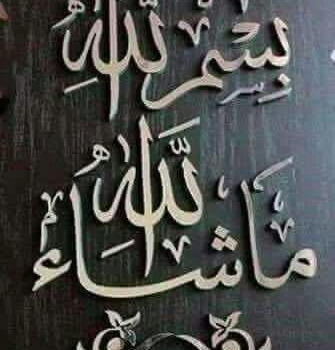 بِسْمِ اللهِ
مَا شَاءَ اللَّه